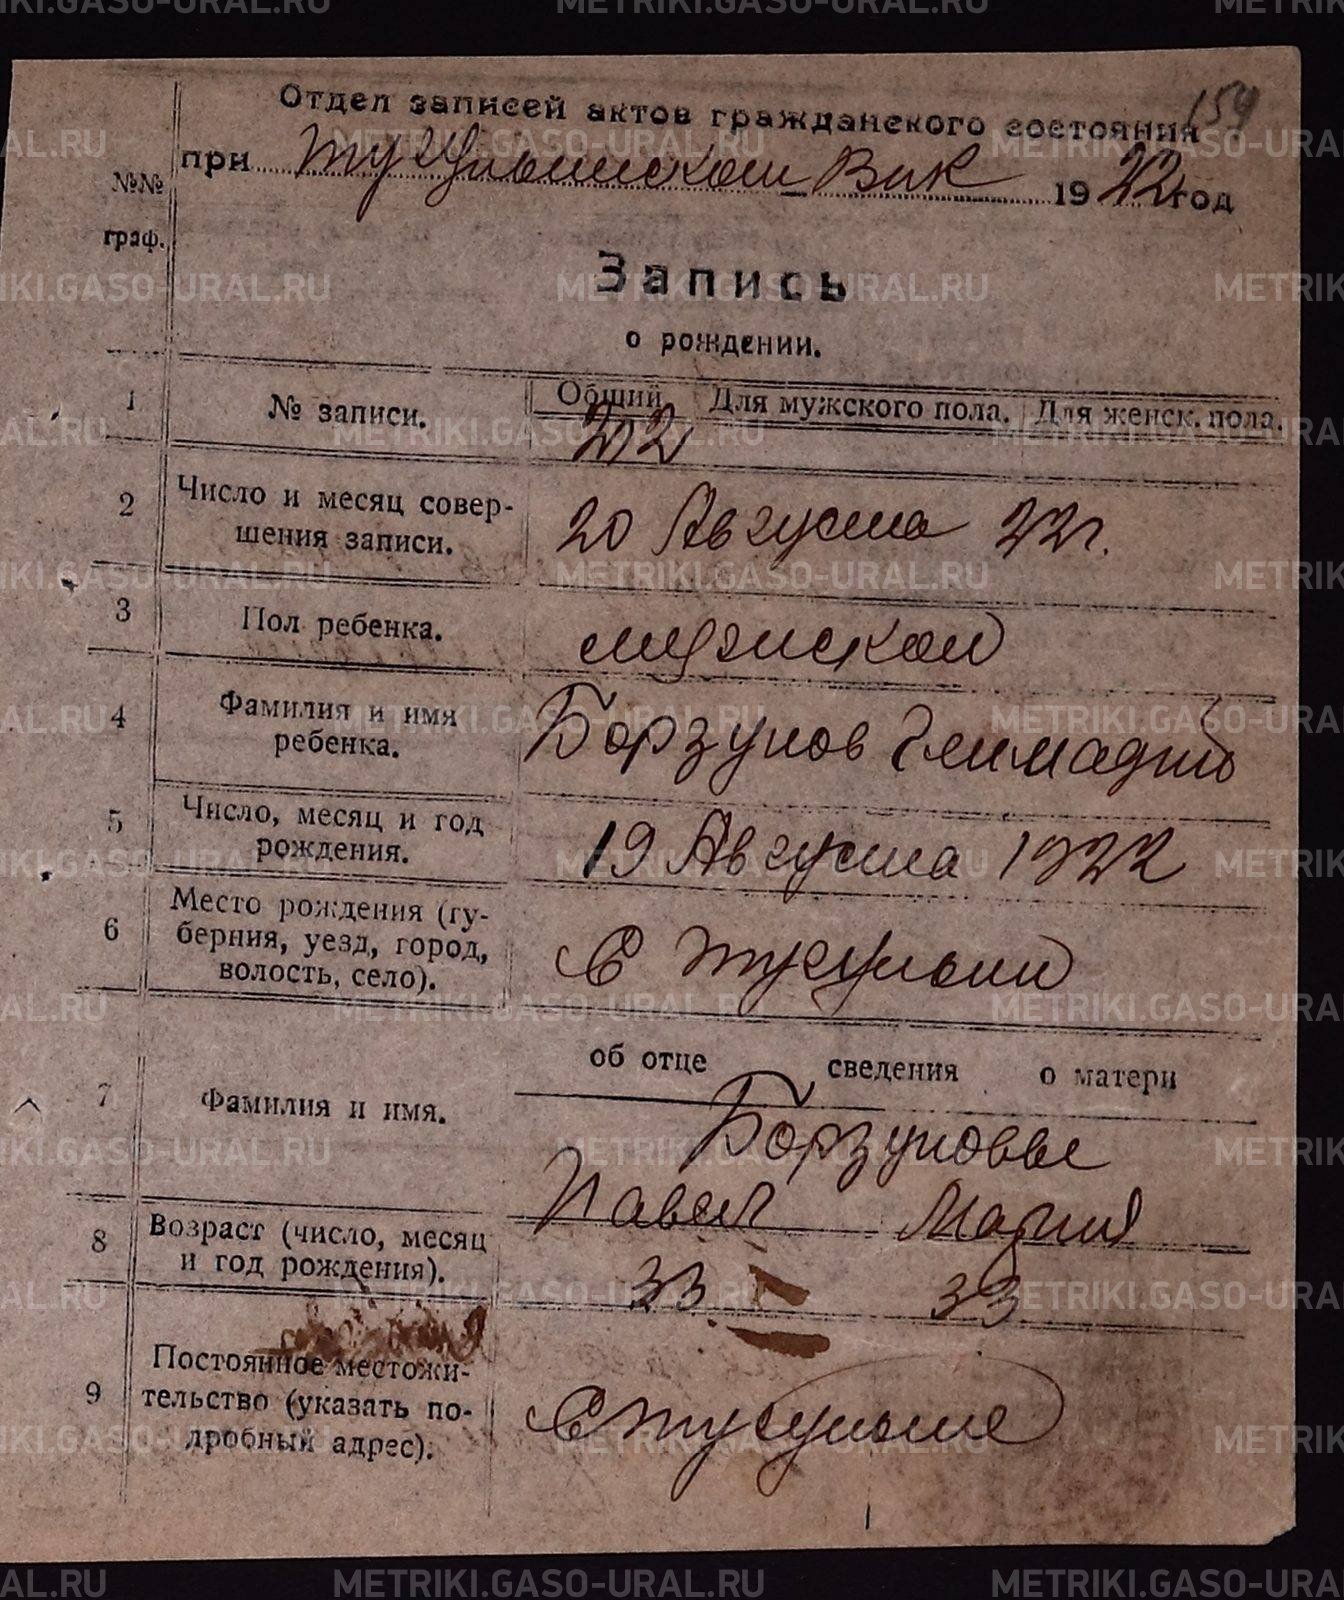 Отдел записей актов гражданского состояния
154
при Тугулымском Вик 1922 год
№№ граф.
Запись
о рождении.
1 № записи. Общий Для мужского пола. Для женск. пола.
212
2 Число и месяц совер-
шения записи.
20 Августа 22 г.
3 Пол ребенка. мужской
4 Фамилия и имя
ребенка.
Борзунов Геннадий
5 Число, месяц и год
рождения.
19 Августа 1922
6 Место рождения (гу-
берния, уезд, город,
волость, село).
С Тугулым
об отце сведения о матери
7 Фамилия и имя.
Борзуновы
Павел Мария
8 Возраст (число, месяц
и год рождения).
33 33
9 Постоянное местожи-
тельство (указать по-
дробный адрес).
С Тугулыме
METRIKI.GASO-URAL.RU